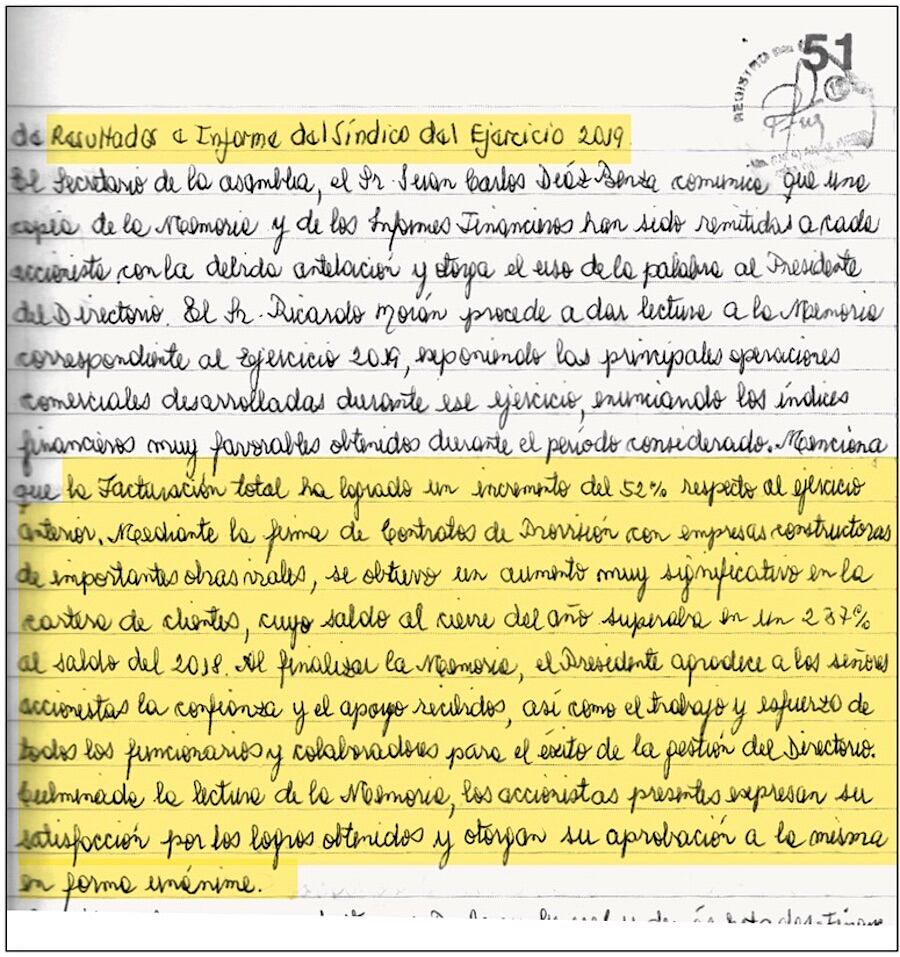 51
REGISTRO
de Resultados e Informe del Síndico del Ejercicio 2019.
El Secretario de la asamblea, el Sr. Juan Carlos Deáz Benza comunica que una
copia de la Memoria y de los Informes Financieros han sido remitidas a cada
accionista con la debida antelación y otorga el uso de la palabra al Presidente
del Directorio. El Sr. Ricardo Morán procede a dar lectura a la Memoria
correspondiente al Ejercicio 2019, exponiendo las principales operaciones
comerciales desarrolladas durante ese ejercicio, enunciando los índices
financieros muy favorables obtenidos durante el período considerado. Menciona
que la Facturación total ha logrado un incremento del 52% respecto al ejercicio
anterior. Mediante la firma de Contratos de Provisión con empresas constructoras
de importantes obras viales, se obtuvo un aumento muy significativo en la
cartera de clientes, cuyo saldo al cierre del año superaba en un 237%
al saldo del 2018. Al finalizar la Memoria, el Presidente agradece a los señores
accionistas la confianza y el apoyo recibidos, así como el trabajo y esfuerzo de
todos los funcionarios y colaboradores para el éxito de la gestión del Directorio.
Culminada la lectura de la Memoria, los accionistas presentes expresan su
satisfacción por los logros obtenidos y otorgan su aprobación a la misma
en forma unánime.